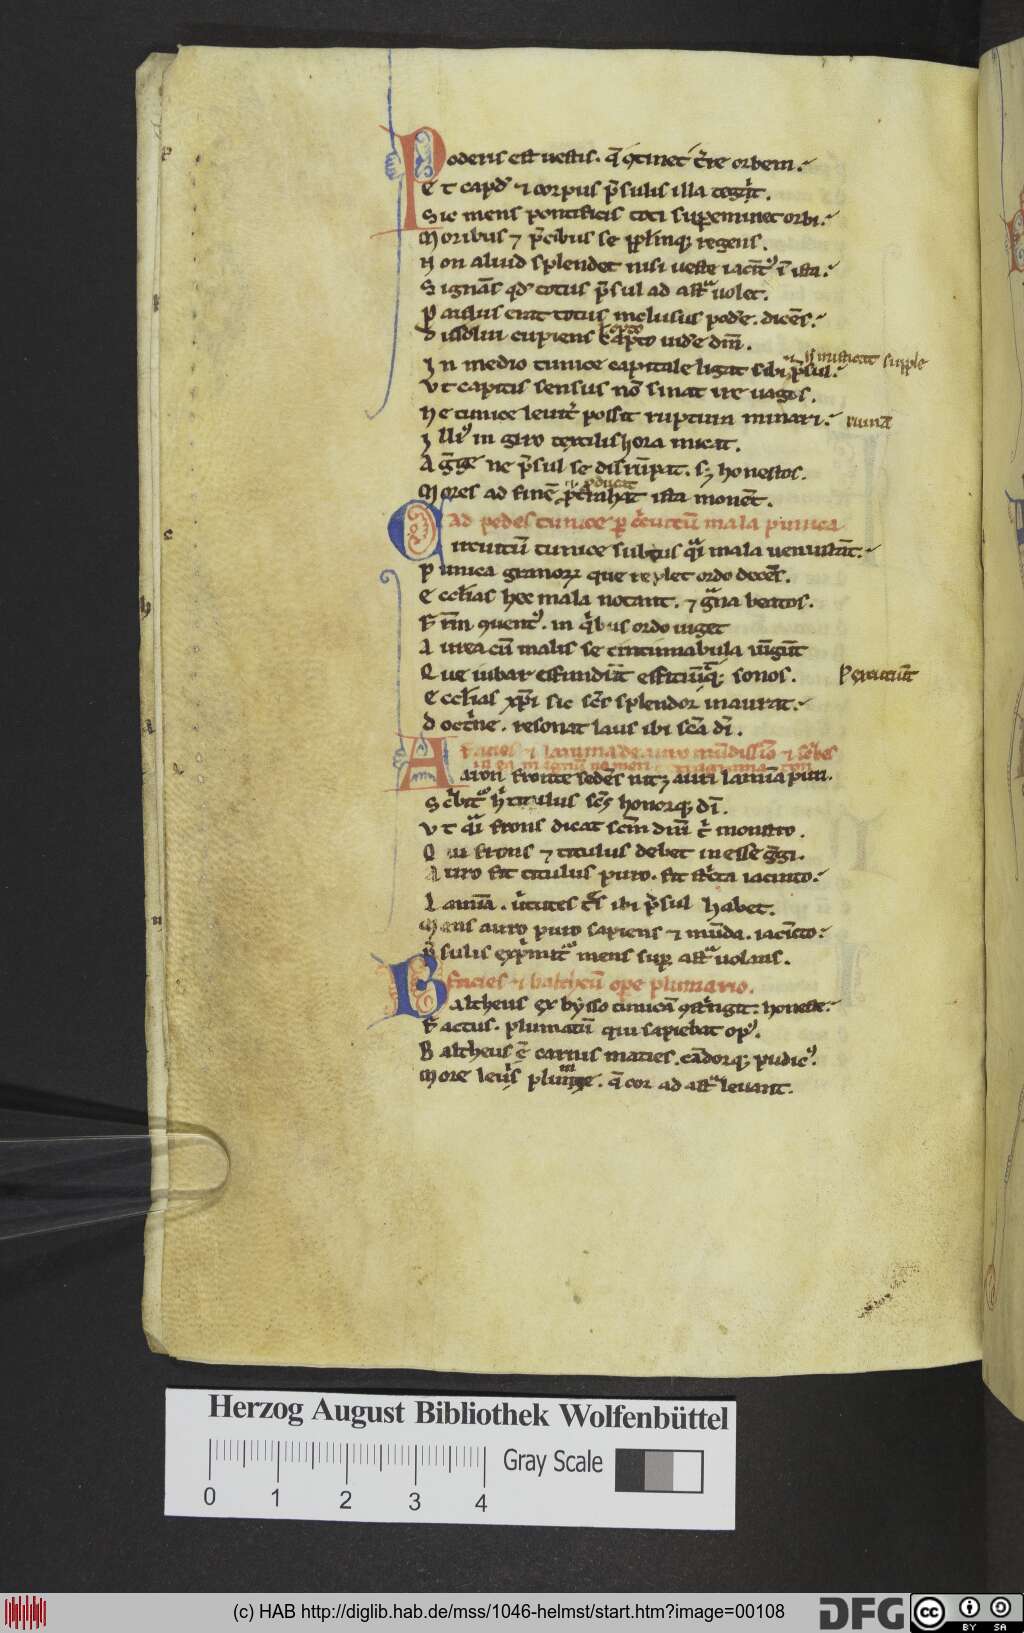 Poderis est uestis. q̄ ꝯtinet t͛re orbem.
Et capđ ⁊ corpus p̄sulis illa tegit.
Sic mens pontificis toti supeminet orbi.
Moribus ⁊ p̄cibus se regens.
Non aliud splendet nisi ueste iacītꝰ ī ista.
Signās qđ totus p̄sul ad astͣ uolet.
Paulus erat totus inclusus pode. dicēs.
Dissolui cupiens uide dnī.
In medio tunice capitale ligat sibi p̄sul.
Vt capitis sensus nō sinat ire uagos.
Ne tunice leuit͛ possit ruptum minari. ruinā
Illiꝰ in giro textilis hora micat.
Agḡe ne p̄sul se disrūpat. sꝫ honestos.
Mores ad finē ista monēt.
Ad pedes tunice ꝑ c͛cuitū mala punica
Circuitū tunice subtus qͣi mala uenustāt.
Punica granoꝝ que replet ordo decēs.
Eccl̄ias hec mala notant. ⁊ gͣna beatos.
Fr̄m ꝯuentꝰ. in qͥbus ordo uiget
Aurea cū malis se tintinnabula iūgūt
Que iubar effundūt efficiūtqꝫ sonos. Percutiūt
Eccl̄ias xp̄i sic sc̄s splendor inaurat.
Doct͛ne. resonat laus ibi sc̄a dī.
Facies ⁊ laminā de auro mūdissīo ⁊ sc͛bes
in ea
Aaron fronte sedēs nitꝫ auri lamīa puri.
Sc͛bitꝰ titulus sc̄s honorqꝫ dī.
Vt qͣi frons dicat sc̄m dnī monstro.
Qui frons ⁊ titulus debet inesse gḡi.
Auro fit titulus puro. fit iacinto.
Lamīa. u͛tutes ibi p̄sul habet.
Mens auro puro sapiens ⁊ mūda. iacīcto.
P̄sulis exp͛mitꝰ mens suꝑ astͣ uolans.
Facies ⁊ baltheū ope plumario.
Baltheus ex bysso tunicā ꝯstͥngit. honeste.
Factus. plumatū qui sapiebat opꝰ.
Baltheus ē carnis maties. cādorqꝫ pudicꝰ.
More leuis plume. q̄ cor ad astͣ leuant.
Herzog August Bibliothek Wolfenbüttel
0 1 2 3 4
Gray Scale
(c) HAB http://diglib.hab.de/mss/1046-helmst/start.htm?image=00108
DFG
cc BY SA